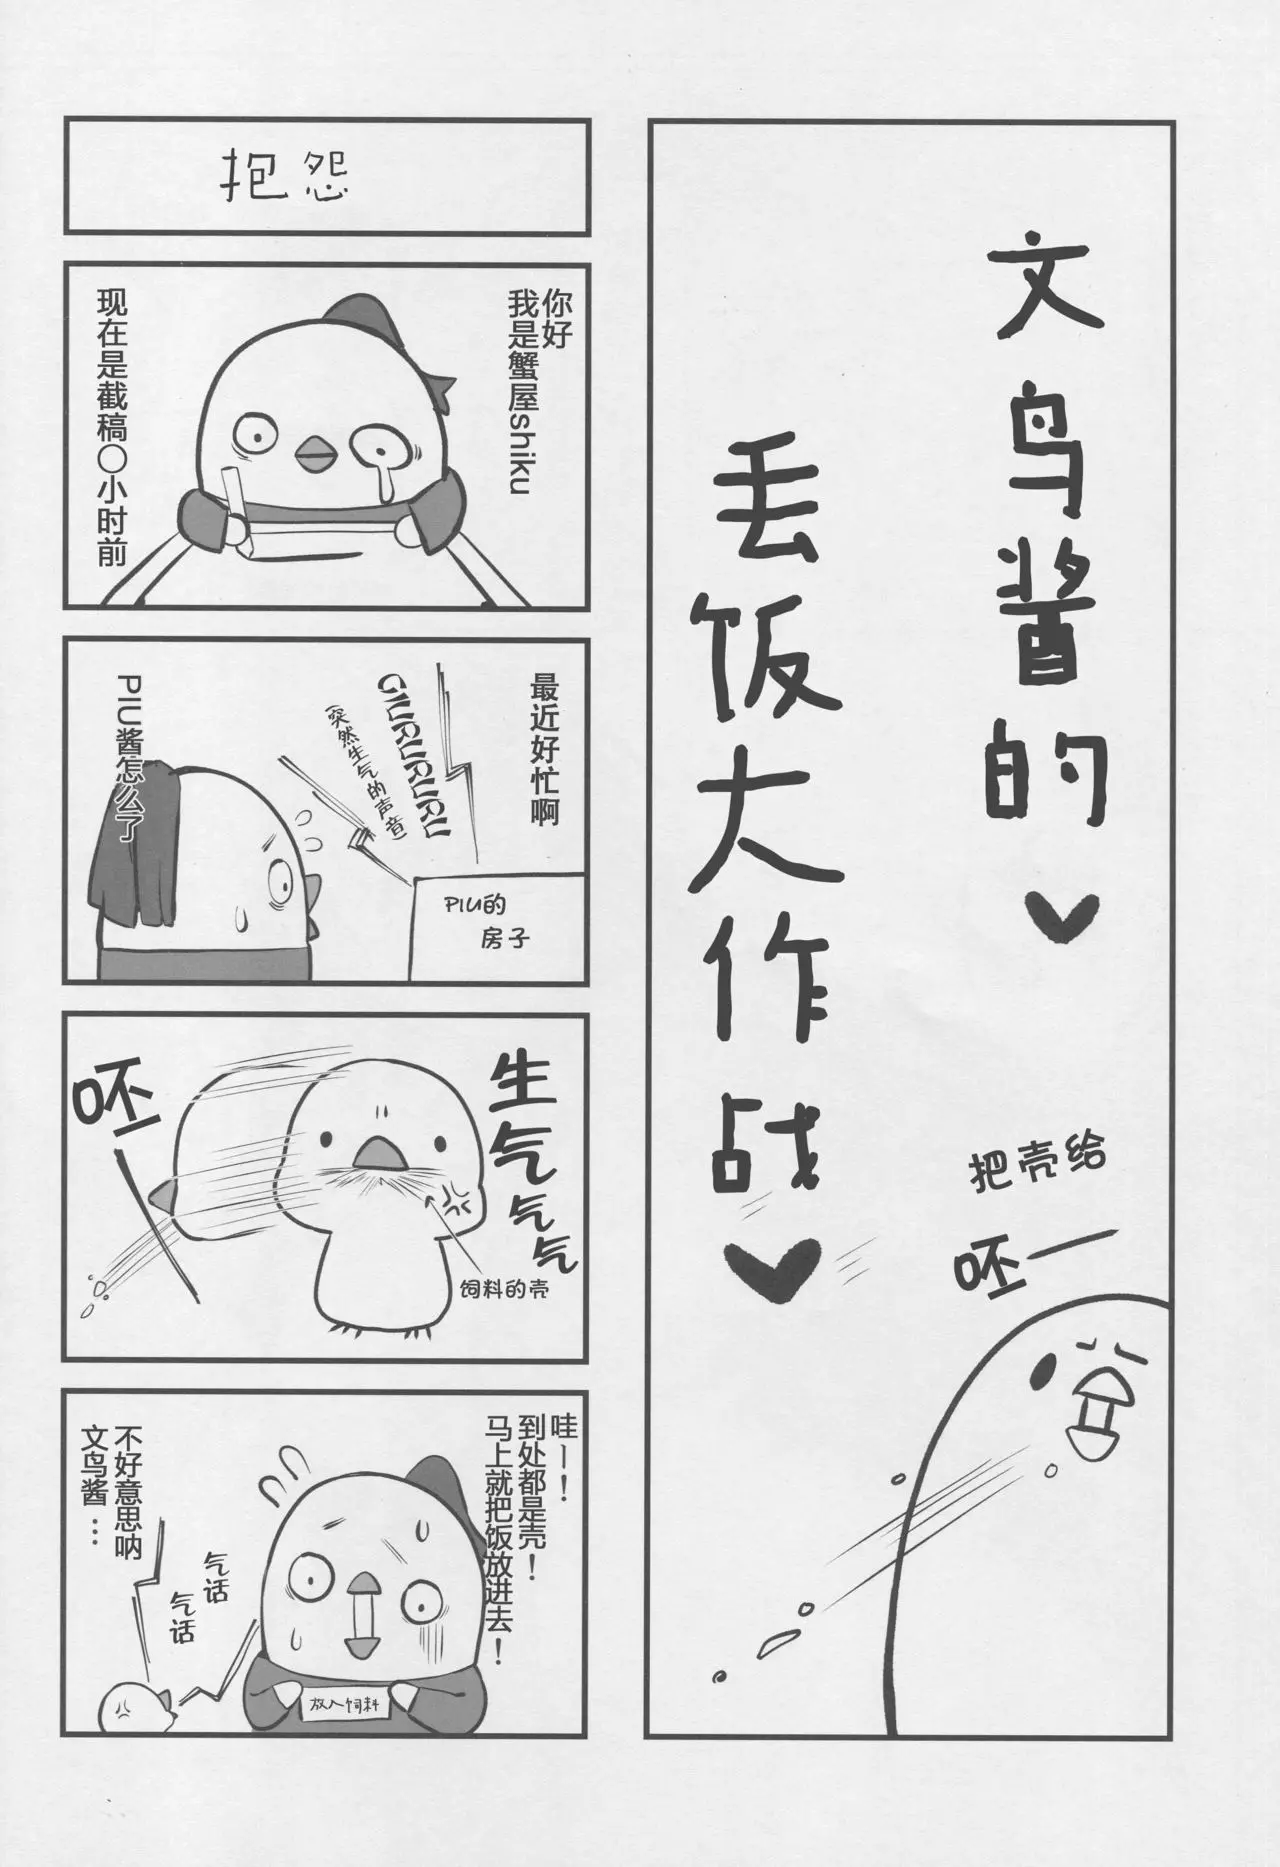 文鸟酱的♥
丢饭大作战♥
把壳给
呸一
抱怨
你好
我是蟹屋shiku
现在是截稿〇小时前
最近好忙啊
GIURURURU
(突然生气的声音)
PIU的
房子
PIU酱怎么了
生气气气
呸一
饲料的壳
哇ー！
到处都是壳！
马上就把饭放进去！
放入饲料
不好意思呐
文鸟酱…
气话
气话